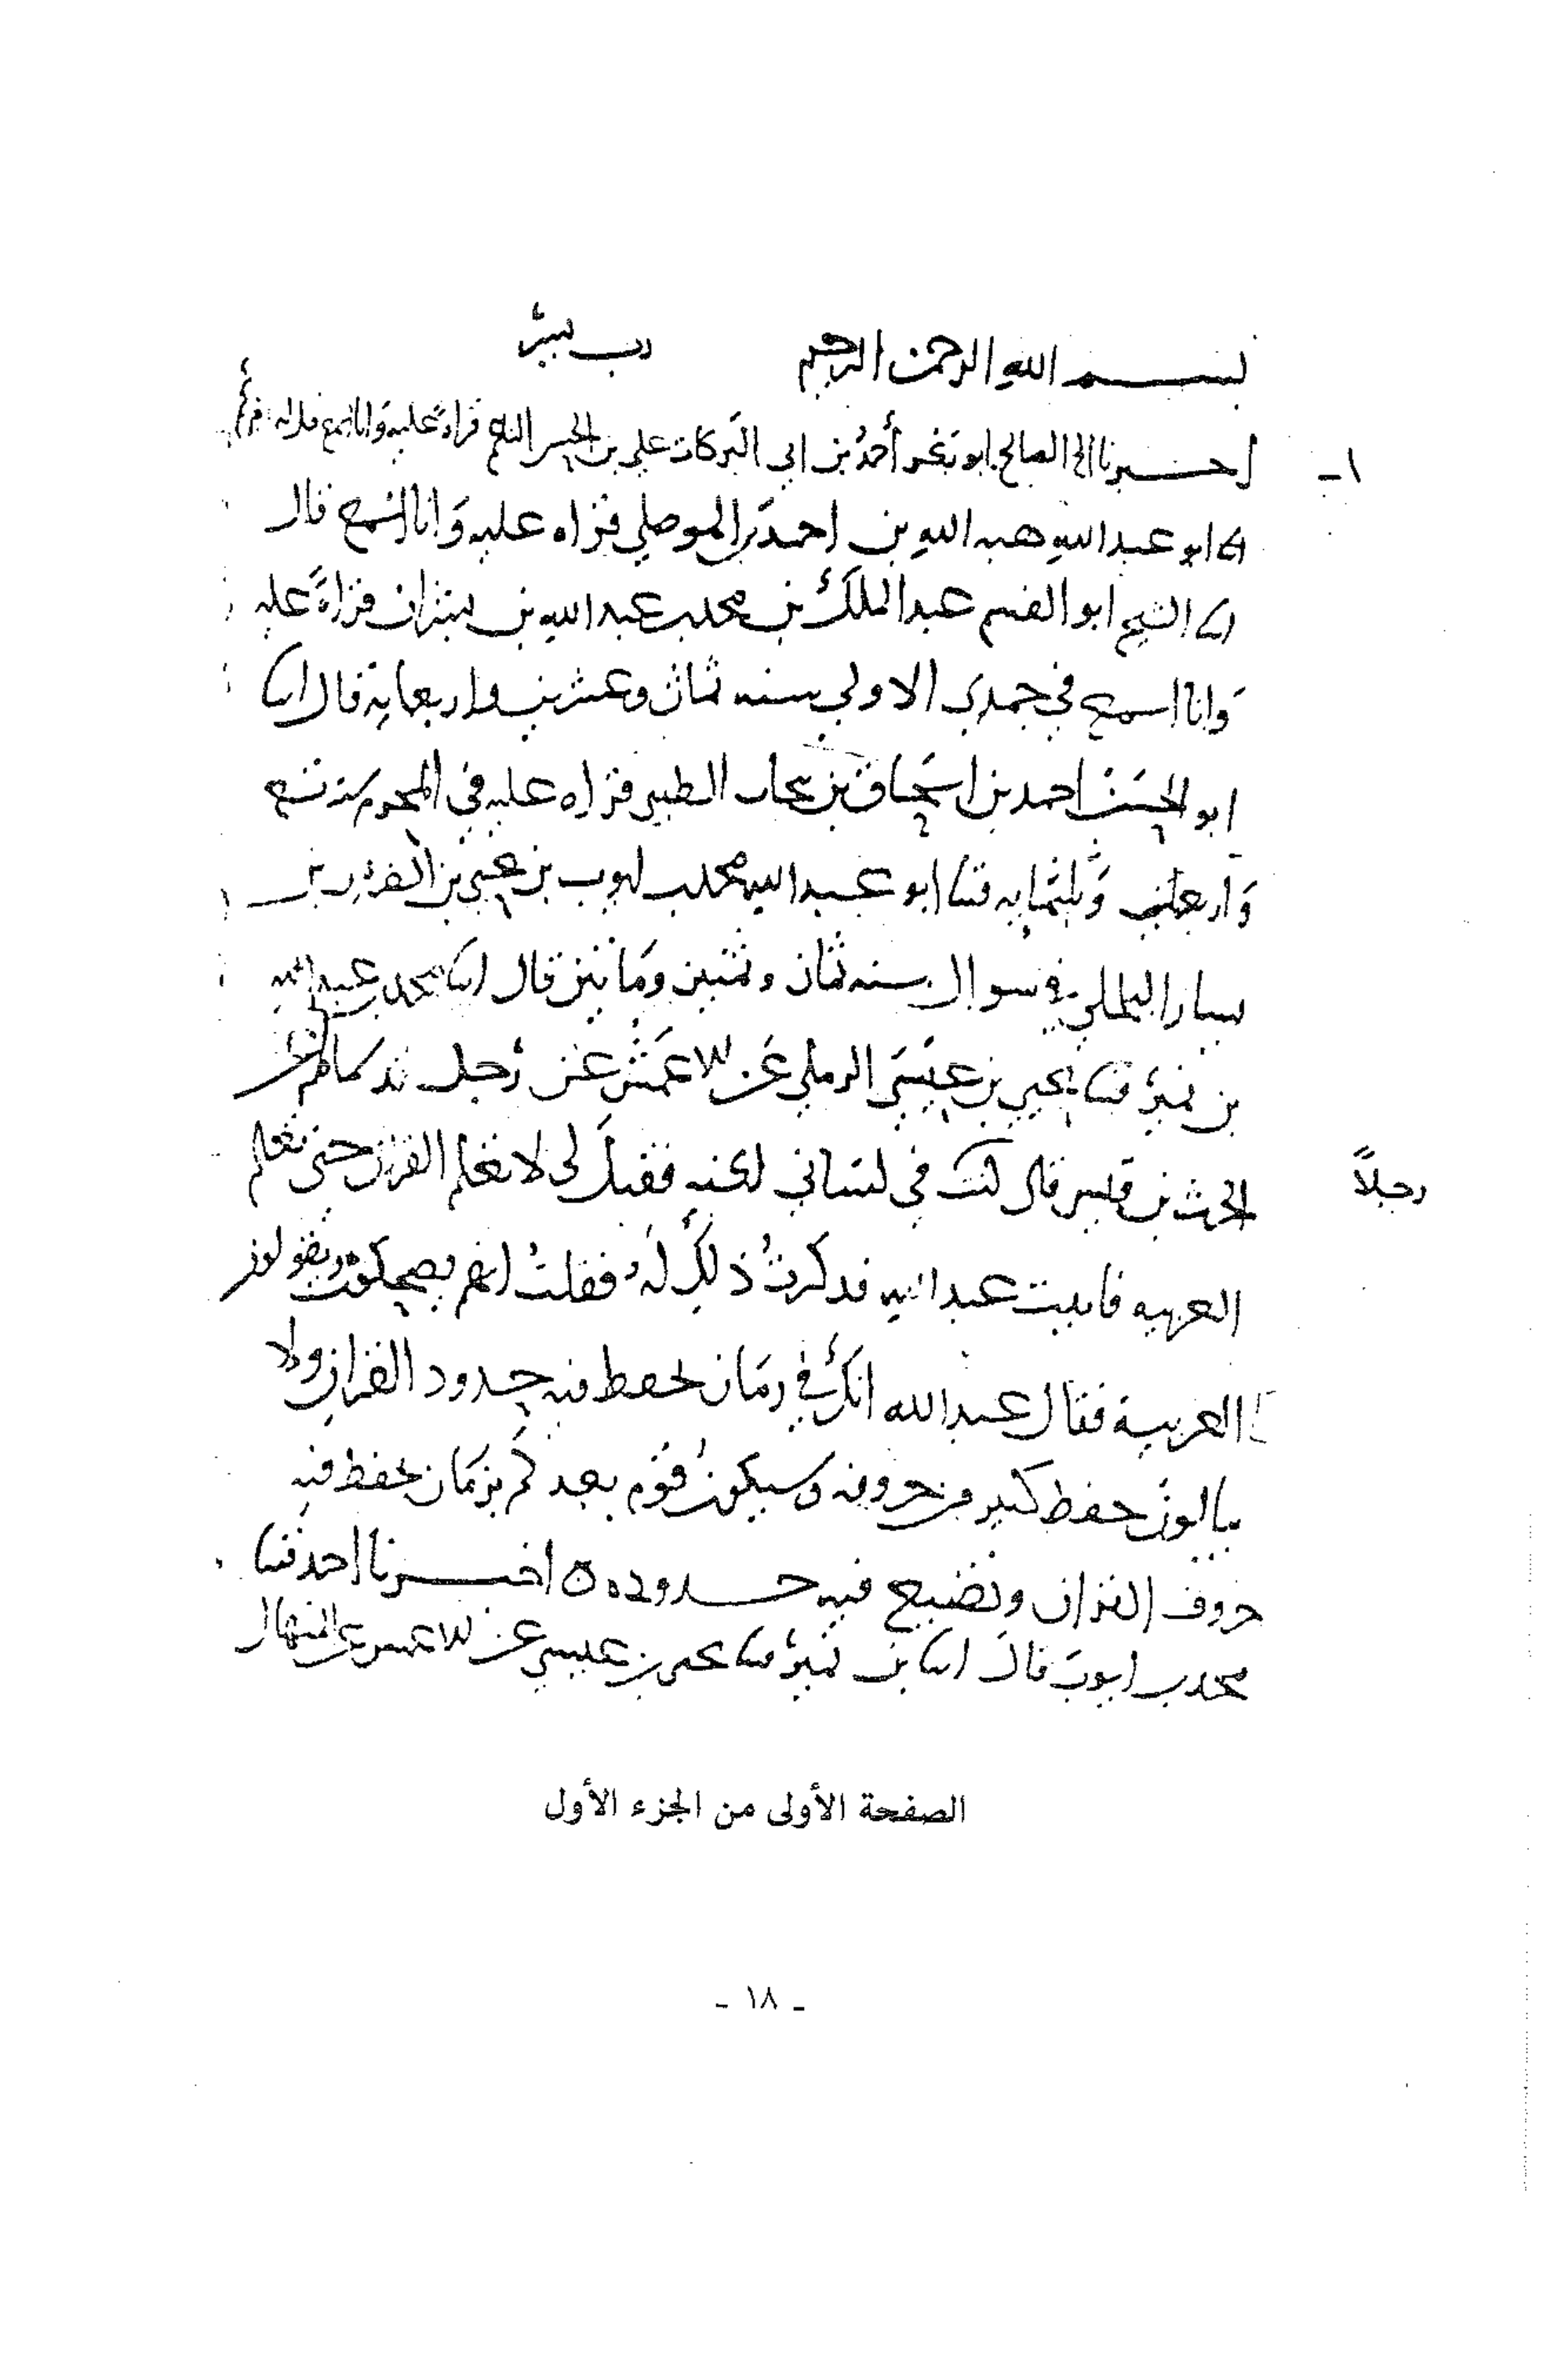 بسم الله الرحمن الرحيم رب يسر
١ـ
اخبرنا الصالح ابو أحمدُ بن ابي البركات علي بن قراءةً عليه وانا اسمع
ابو عبد الله هبه الله بن احمد الموصلي قراه عليه وَانا اسمع قال
الشيخ ابو القسم عبد الملك بن محمد بن عبد الله بن بشران قراءةً عليه
وَانا اسمع في جمدي الاولي سنه ثمان وعشرين واربعماية قال انبا
ابو الحسن احمد بن اسحاق بن الطيبي قراه عليه في المحرم سنه تسع
وَاربعين وَثلثمايه ثنا ابو عبد الله محمد بن ايوب بن يحيى بن الضريس بن
يسار البجلي في شوال سنه ثمان وثمنين ومَاتين قال انبا محمد بن عبد الله
بن نمير ثنا يحيى بن عيسَى الرملي عَن الاعمَش عَن رجل
رجلاً
الحرث بن قيس قال كنت في لساني لكنه فقيلَ لي لا تعلم القران حتى تعلم
العربيه فاتيت عبد الله فذكرتُ ذلكَ لَهُ فقلتُ انهم يضحكون ويقولون
العربية فقال عبد الله انكَ في زمَان تحفظ فيه حدود القران ولا
يبالون حفظ كثير من حروفه وسيكون قوم بعدكم بزمَان تحفظ فيه
حروف القران وتضيع فيه حدوده ه اخبرنا احمد ثنا
محمد بن ايوبَ قالَ انبا بن نمير ثنا يحيى بن عيسي عن الاعمش عن المنهال
الصفحة الأولى من الجزء الأول
ـ ١٨ ـ